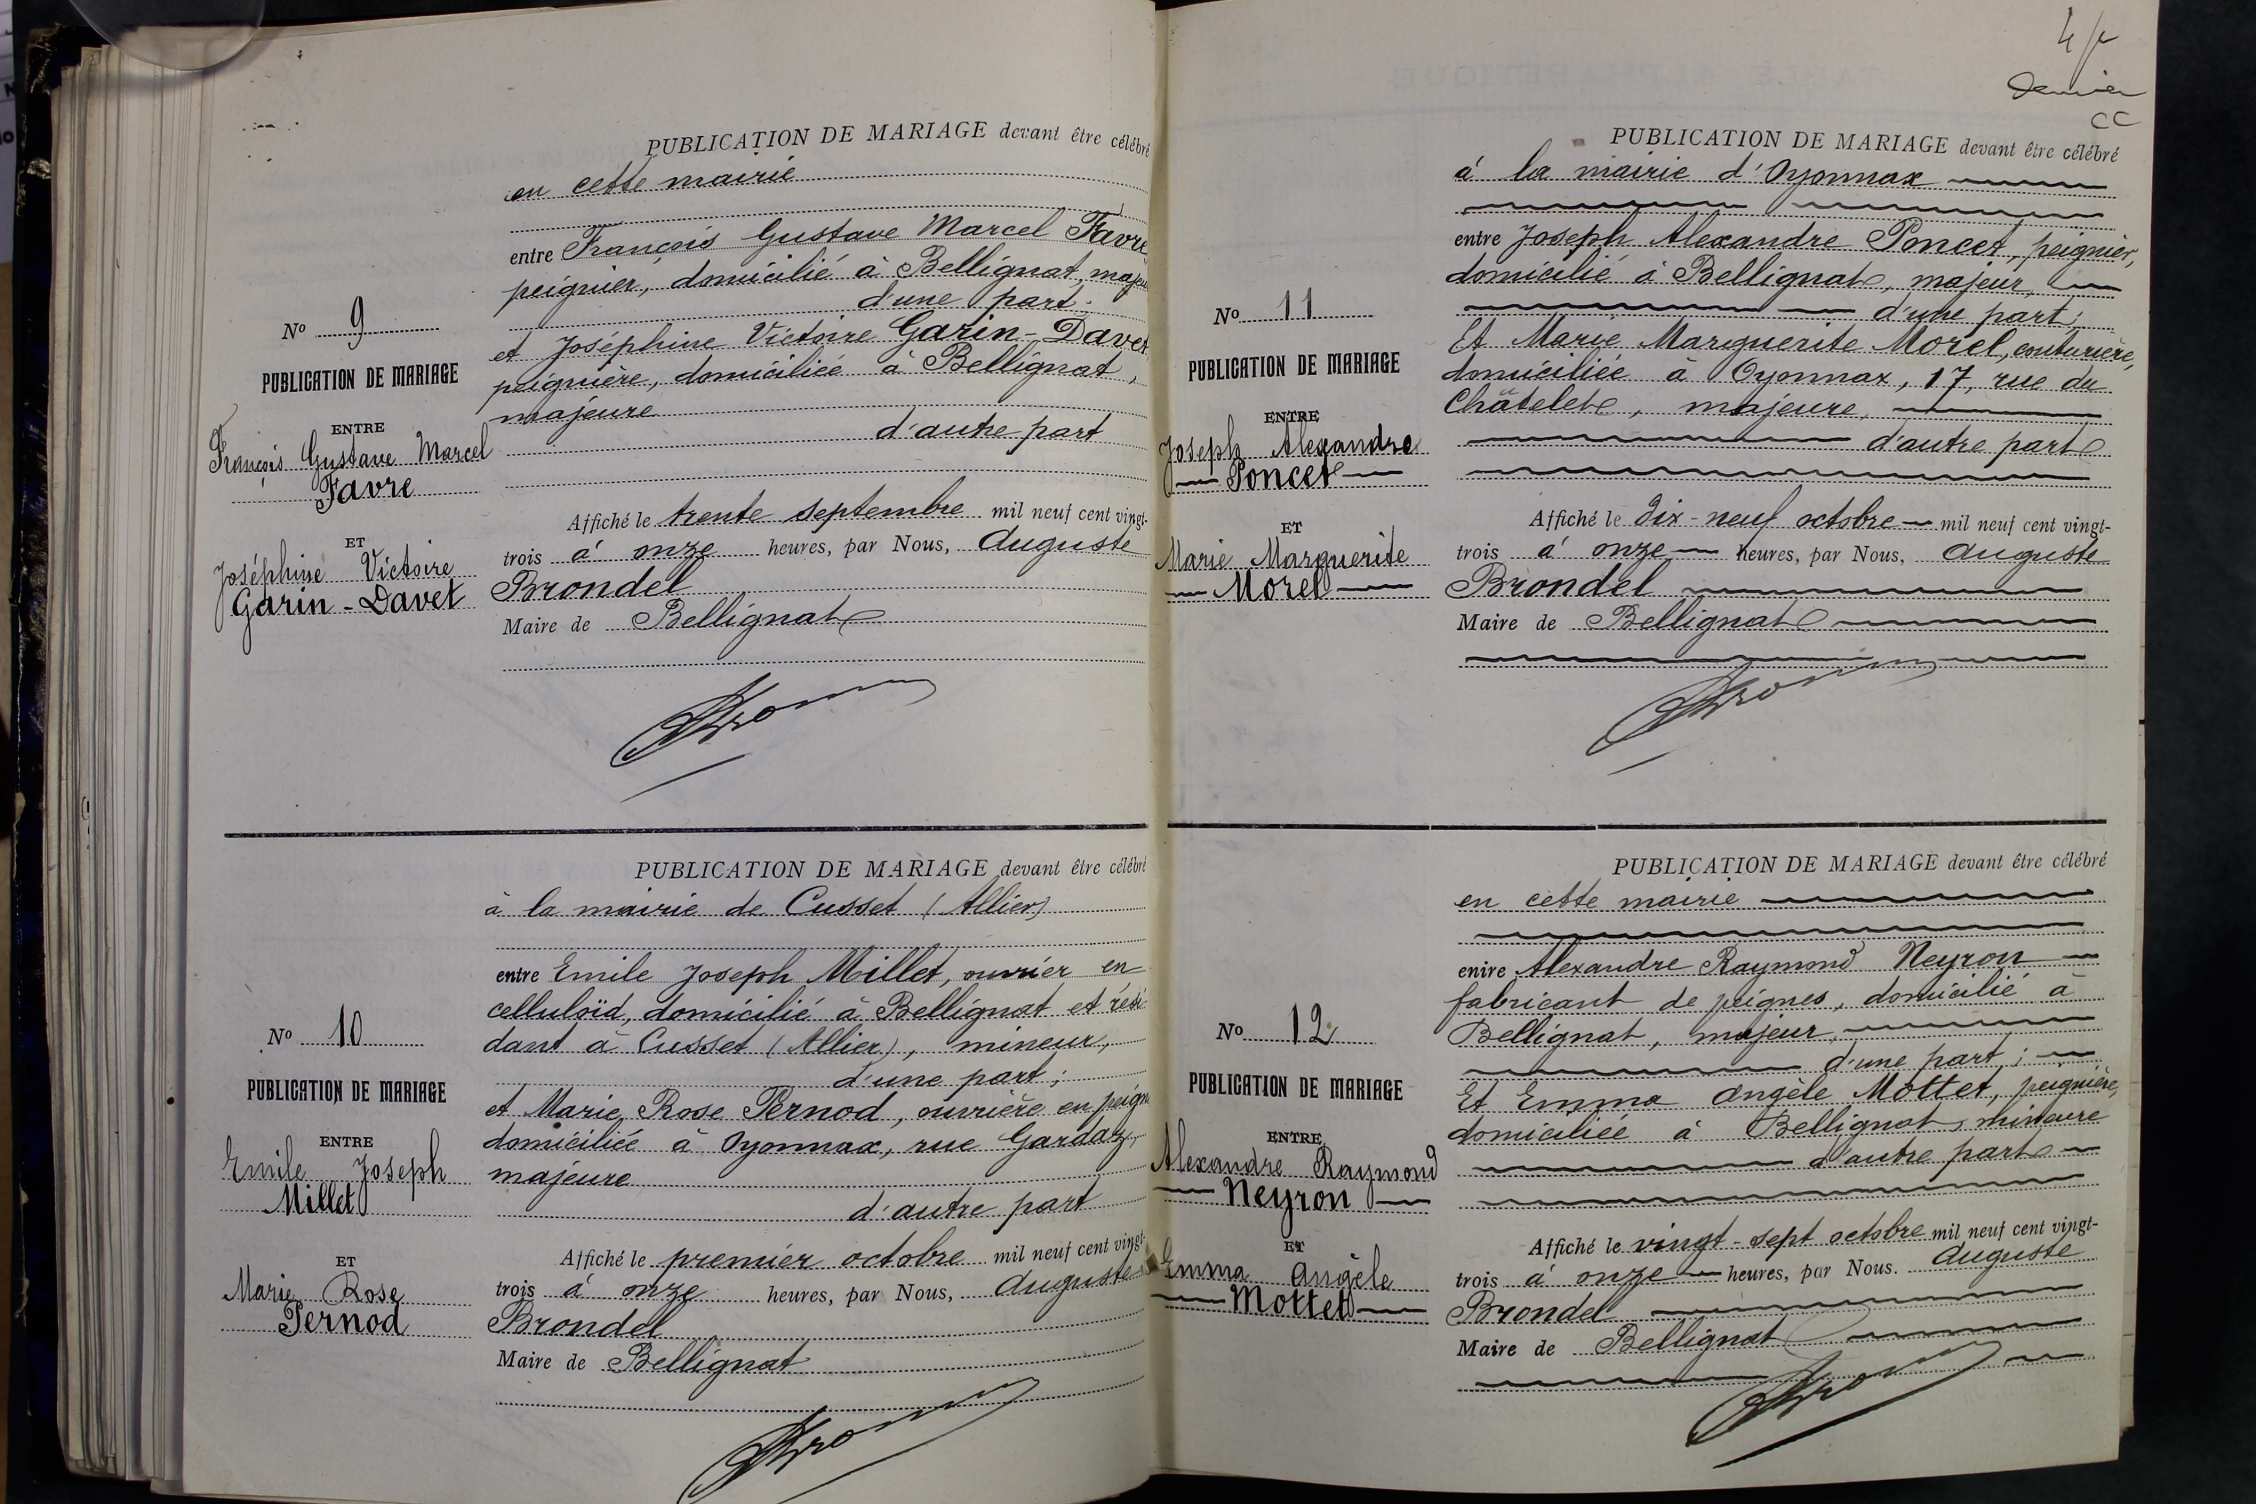 PUBLICATION DE MARIAGE devant être célébré
en cette mairie
entre François Gustave Marcel Favre
peignier, domicilié à Bellignat, majeur
d'une part.
et Joséphine Victoire Garin-Davet
peignière, domiciliée à Bellignat,
majeure
d'autre part
Affiché le trente septembre mil neuf cent vingt-
trois à onze heures, par Nous, Auguste
Brondel
Maire de Bellignat
No 9
PUBLICATION DE MARIAGE
ENTRE
François Gustave Marcel
Favre
ET
Joséphine Victoire
Garin-Davet
PUBLICATION DE MARIAGE devant être célébré
à la mairie de Cusset (Allier)
entre Emile Joseph Millet, ouvrier en
celluloïd, domicilié à Bellignat et rési-
dant à Cusset (Allier), mineur,
d'une part;
et Marie Rose Pernod, ouvrière en peign
domiciliée à Oyonnax, rue Gardaz,
majeure
d'autre part
Affiché le premier octobre mil neuf cent vingt-
trois à onze heures, par Nous, Auguste
Brondel
Maire de Bellignat
No 10
PUBLICATION DE MARIAGE
ENTRE
Emile Joseph
Millet
ET
Marie Rose
Pernod
Dernier
PUBLICATION DE MARIAGE devant être célébré
à la mairie d'Oyonnax
entre Joseph Alexandre Poncet, peignier,
domicilié à Bellignat, majeur,
d'une part;
Et Marie Marguerite Morel, couturière,
domiciliée à Oyonnax, 17, rue du
Châtelet, majeure,
d'autre part
Affiché le dix-neuf octobre mil neuf cent vingt-
trois à onze heures, par Nous, Auguste
Brondel
Maire de Bellignat
No 11
PUBLICATION DE MARIAGE
ENTRE
Joseph Alexandre
Poncet
ET
Marie Marguerite
Morel
PUBLICATION DE MARIAGE devant être célébré
en cette mairie
entre Alexandre Raymond Neyron
fabricant de peignes, domicilié à
Bellignat, majeur,
d'une part;
Et Emma Angèle Mottet, peignière,
domiciliée à Bellignat, mineure
d'autre part
Affiché le vingt-sept octobre mil neuf cent vingt-
trois à onze heures, par Nous. Auguste
Brondel
Maire de Bellignat
No 12
PUBLICATION DE MARIAGE
ENTRE
Alexandre Raymond
Neyron
ET
Emma Angèle
Mottet